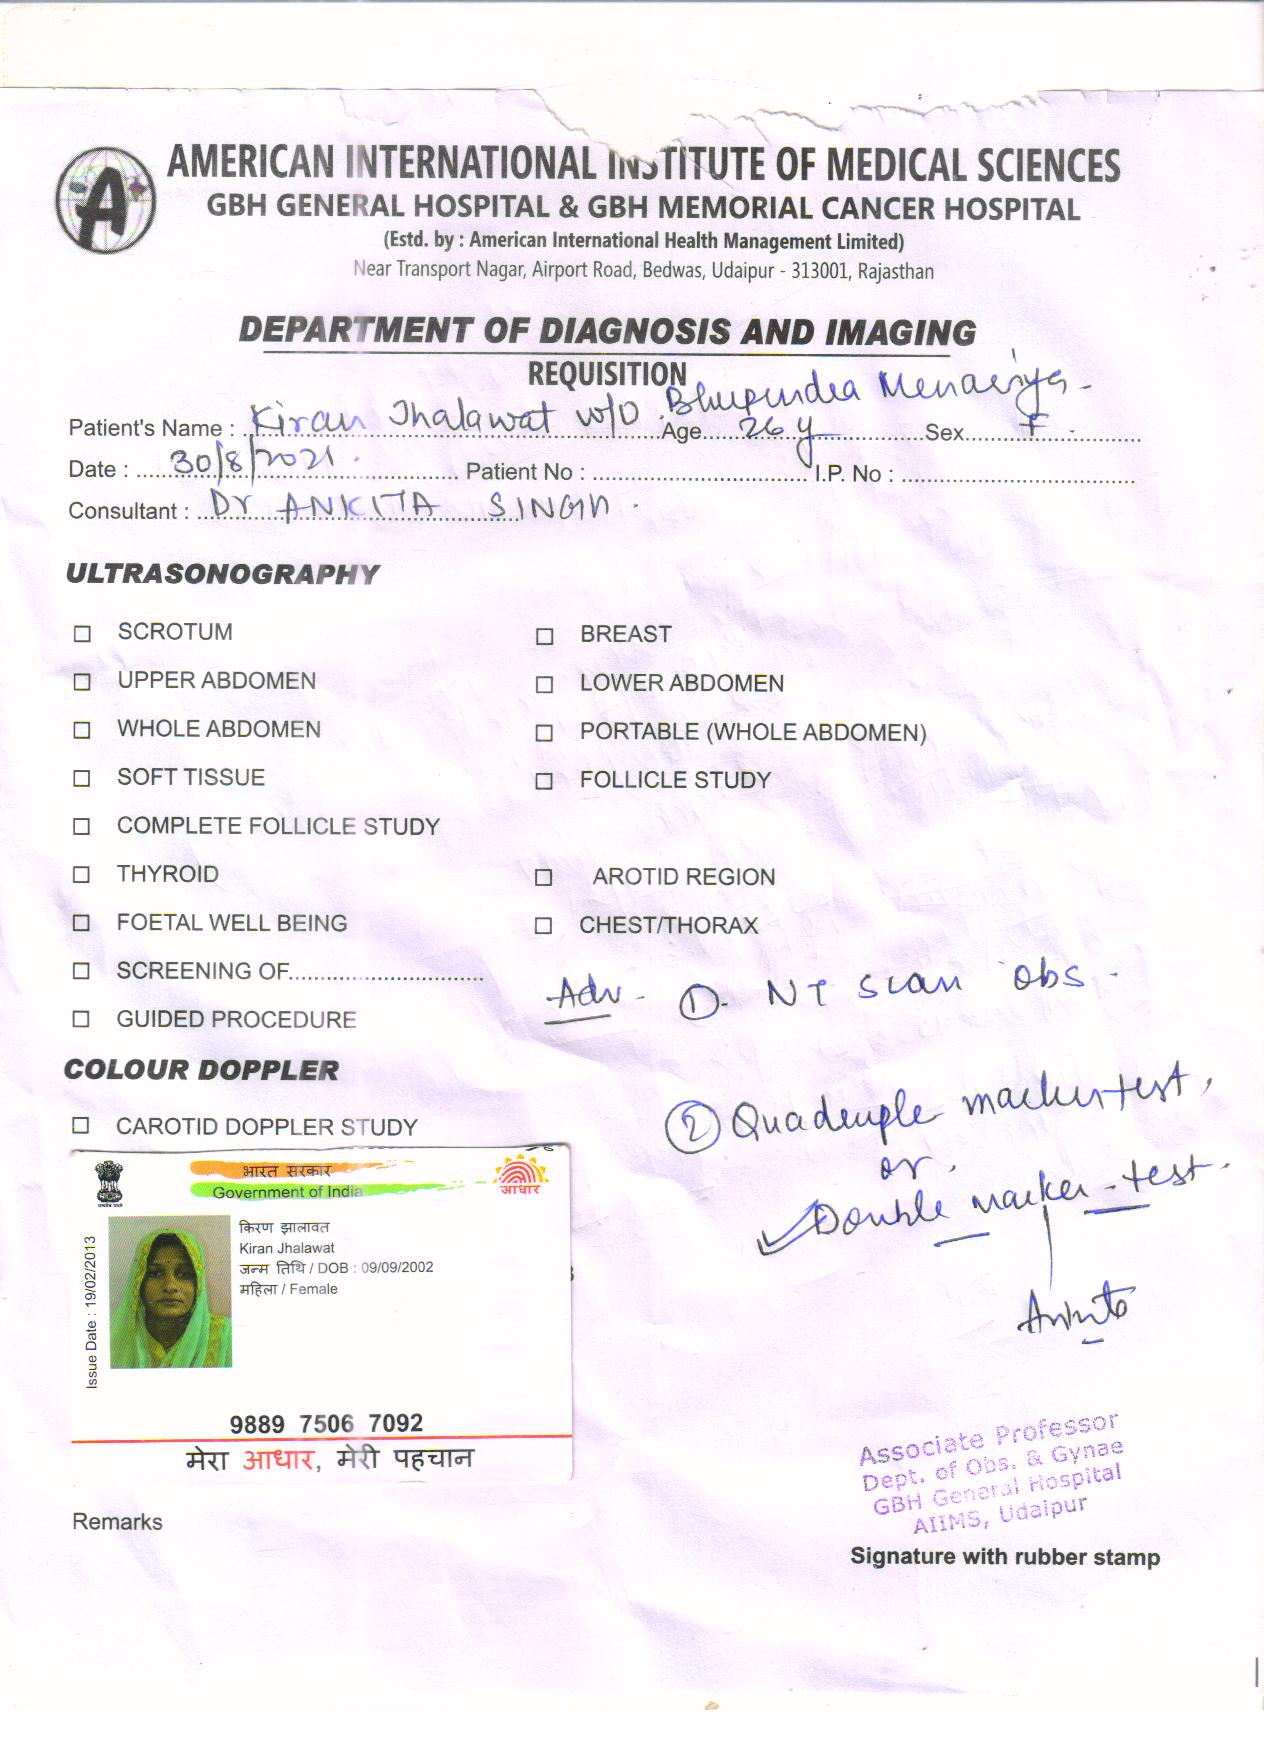 AMERICAN INTERNATIONAL INSTITUTE OF MEDICAL SCIENCES
GBH GENERAL HOSPITAL & GBH MEMORIAL CANCER HOSPITAL
(Estd. by : American International Health Management Limited)
Near Transport Nagar, Airport Road, Bedwas, Udaipur - 313001, Rajasthan
DEPARTMENT OF DIAGNOSIS AND IMAGING
REQUISITION
Patient's Name : Kiran Jhalawat w/o Bhupendra Menariya Age 26 y Sex F
Date : 30/8/2021 Patient No : I.P. No :
Consultant : Dr ANKITA SINGH
ULTRASONOGRAPHY
SCROTUM
BREAST
UPPER ABDOMEN
LOWER ABDOMEN
WHOLE ABDOMEN
PORTABLE (WHOLE ABDOMEN)
SOFT TISSUE
FOLLICLE STUDY
COMPLETE FOLLICLE STUDY
THYROID
AROTID REGION
FOETAL WELL BEING
CHEST/THORAX
SCREENING OF
Adv - ① NT scan obs
GUIDED PROCEDURE
COLOUR DOPPLER
② Quadruple marker test,
CAROTID DOPPLER STUDY
or
Double marker test
भारत सरकार
Government of India
आधार
किरण झालावत
Kiran Jhalawat
जन्म तिथि / DOB : 09/09/2002
महिला / Female
Issue Date : 19/02/2013
Ankita
9889 7506 7092
मेरा आधार, मेरी पहचान
Associate Professor
Dept. of Obs. & Gynae
GBH General Hospital
AIIMS, Udaipur
Remarks
Signature with rubber stamp